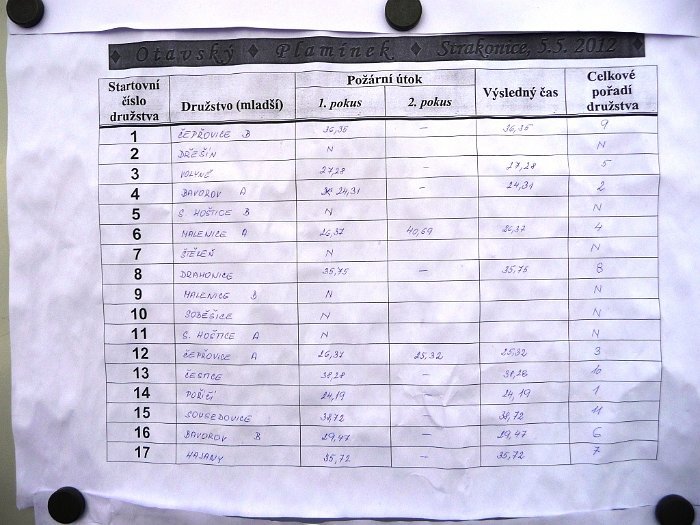 ♦ Otavský ♦ Plamínek ♦ Strakonice, 5.5. 2012 ♦
Startovní číslo družstva Družstvo (mladší) Požární útok 1. pokus 2. pokus Výsledný čas Celkové pořadí družstva
1 ČEPŘOVICE B 36,35 – 36,35 9
2 DŘEŠÍN N N
3 VOLYNĚ 27,28 – 27,28 5
4 BAVOROV A 24,31 – 24,31 2
5 S. HOŠTICE B N N
6 MALENICE A 26,37 40,69 26,37 4
7 ŠTĚKEŇ N N
8 DRAHONICE 35,75 – 35,75 8
9 MALENICE B N N
10 SOBĚŠICE N N
11 S. HOŠTICE A N N
12 ČEPŘOVICE A 26,37 25,32 25,32 3
13 ČESTICE 38,28 – 38,28 10
14 POŘÍČÍ 24,19 – 24,19 1
15 SOUSEDOVICE 38,72 – 38,72 11
16 BAVOROV B 29,47 – 29,47 6
17 HAJANY 35,72 – 35,72 7